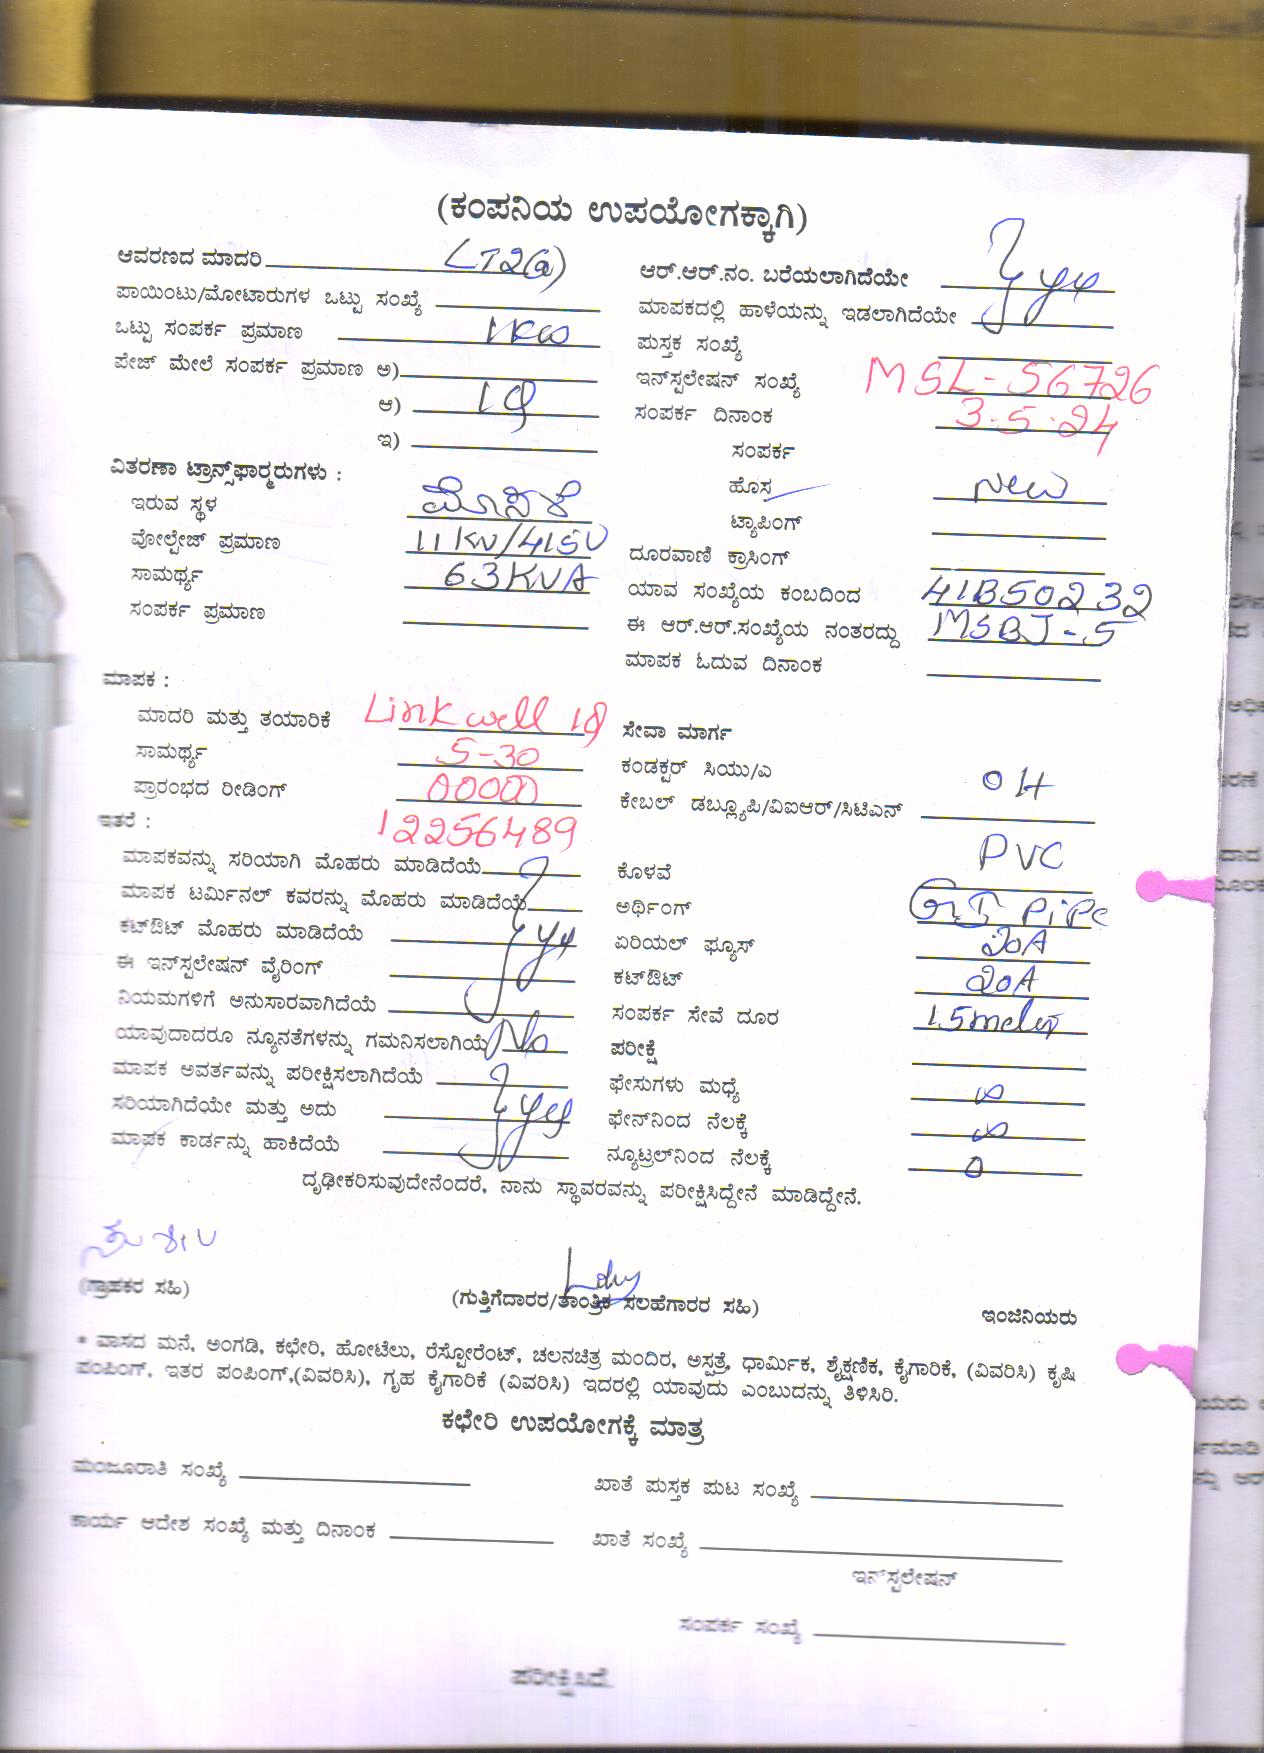 (ಕಂಪನಿಯ ಉಪಯೋಗಕ್ಕಾಗಿ)
ಆವರಣದ ಮಾದರಿ LT2(a)
ಪಾಯಿಂಟು/ಮೋಟಾರುಗಳ ಒಟ್ಟು ಸಂಖ್ಯೆ
ಒಟ್ಟು ಸಂಪರ್ಕ ಪ್ರಮಾಣ 1KW
ಪೇಜ್ ಮೇಲೆ ಸಂಪರ್ಕ ಪ್ರಮಾಣ ಅ)
ಆ) 1φ
ಇ)
ವಿತರಣಾ ಟ್ರಾನ್ಸ್‌ಫಾರ್‍ಮರುಗಳು :
ಇರುವ ಸ್ಥಳ
ವೋಲ್ಟೇಜ್ ಪ್ರಮಾಣ 11KV/415V
ಸಾಮರ್ಥ್ಯ 63KVA
ಸಂಪರ್ಕ ಪ್ರಮಾಣ
ಮಾಪಕ :
ಮಾದರಿ ಮತ್ತು ತಯಾರಿಕೆ Linkwell 1φ
ಸಾಮರ್ಥ್ಯ 5-30
ಪ್ರಾರಂಭದ ರೀಡಿಂಗ್ 00000
ಇತರೆ : 12256489
ಮಾಪಕವನ್ನು ಸರಿಯಾಗಿ ಮೊಹರು ಮಾಡಿದೆಯೆ
ಮಾಪಕ ಟರ್ಮಿನಲ್ ಕವರನ್ನು ಮೊಹರು ಮಾಡಿದೆಯೆ
ಕಟ್‌ಔಟ್ ಮೊಹರು ಮಾಡಿದೆಯೆ
ಈ ಇನ್‌ಸ್ಟಲೇಷನ್ ವೈರಿಂಗ್
ನಿಯಮಗಳಿಗೆ ಅನುಸಾರವಾಗಿದೆಯೆ
ಯಾವುದಾದರೂ ನ್ಯೂನತೆಗಳನ್ನು ಗಮನಿಸಲಾಗಿಯೆ No
ಮಾಪಕ ಅವರ್ತವನ್ನು ಪರೀಕ್ಷಿಸಲಾಗಿದೆಯೆ
ಸರಿಯಾಗಿದೆಯೇ ಮತ್ತು ಅದು
ಮಾಪಕ ಕಾರ್ಡನ್ನು ಹಾಕಿದೆಯೆ
ಆರ್.ಆರ್.ನಂ. ಬರೆಯಲಾಗಿದೆಯೇ
ಮಾಪಕದಲ್ಲಿ ಹಾಳೆಯನ್ನು ಇಡಲಾಗಿದೆಯೇ
ಪುಸ್ತಕ ಸಂಖ್ಯೆ
ಇನ್‌ಸ್ಟಲೇಷನ್ ಸಂಖ್ಯೆ MSL-56726
ಸಂಪರ್ಕ ದಿನಾಂಕ 3-5-24
ಸಂಪರ್ಕ
ಹೊಸ New
ಟ್ಯಾಪಿಂಗ್
ದೂರವಾಣಿ ಕ್ರಾಸಿಂಗ್
ಯಾವ ಸಂಖ್ಯೆಯ ಕಂಬದಿಂದ 41B50232
ಈ ಆರ್.ಆರ್.ಸಂಖ್ಯೆಯ ನಂತರದ್ದು MSBJ-5
ಮಾಪಕ ಓದುವ ದಿನಾಂಕ
ಸೇವಾ ಮಾರ್ಗ
ಕಂಡಕ್ಟರ್ ಸಿಯು/ಎ OH
ಕೇಬಲ್ ಡಬ್ಲ್ಯೂಪಿ/ವಿಐಆರ್/ಸಿಟಿಎನ್
ಕೊಳವೆ PVC
ಅರ್ಥಿಂಗ್ GI Pipe
ಏರಿಯಲ್ ಫ್ಯೂಸ್ 20A
ಕಟ್‌ಔಟ್ 20A
ಸಂಪರ್ಕ ಸೇವೆ ದೂರ 15meter
ಪರೀಕ್ಷೆ
ಫೇಸುಗಳು ಮಧ್ಯೆ ∞
ಫೇನ್‌ನಿಂದ ನೆಲಕ್ಕೆ ∞
ನ್ಯೂಟ್ರಲ್‌ನಿಂದ ನೆಲಕ್ಕೆ 0
ದೃಢೀಕರಿಸುವುದೇನೆಂದರೆ, ನಾನು ಸ್ಥಾವರವನ್ನು ಪರೀಕ್ಷಿಸಿದ್ದೇನೆ ಮಾಡಿದ್ದೇನೆ.
(ಗ್ರಾಹಕರ ಸಹಿ) (ಗುತ್ತಿಗೆದಾರರ/ತಾಂತ್ರಿಕ ಸಲಹೆಗಾರರ ಸಹಿ) ಇಂಜಿನಿಯರು
* ವಾಸದ ಮನೆ, ಅಂಗಡಿ, ಕಛೇರಿ, ಹೋಟೆಲು, ರೆಸ್ಟೋರೆಂಟ್, ಚಲನಚಿತ್ರ ಮಂದಿರ, ಅಸ್ಪತ್ರೆ, ಧಾರ್ಮಿಕ, ಶೈಕ್ಷಣಿಕ, ಕೈಗಾರಿಕೆ, (ವಿವರಿಸಿ) ಕೃಷಿ
ಪಂಪಿಂಗ್, ಇತರ ಪಂಪಿಂಗ್,(ವಿವರಿಸಿ), ಗೃಹ ಕೈಗಾರಿಕೆ (ವಿವರಿಸಿ) ಇದರಲ್ಲಿ ಯಾವುದು ಎಂಬುದನ್ನು ತಿಳಿಸಿರಿ.
ಕಛೇರಿ ಉಪಯೋಗಕ್ಕೆ ಮಾತ್ರ
ಮಂಜೂರಾತಿ ಸಂಖ್ಯೆ ಖಾತೆ ಪುಸ್ತಕ ಪುಟ ಸಂಖ್ಯೆ
ಕಾರ್ಯ ಆದೇಶ ಸಂಖ್ಯೆ ಮತ್ತು ದಿನಾಂಕ ಖಾತೆ ಸಂಖ್ಯೆ
ಇನ್‌ಸ್ಟಲೇಷನ್
ಸಂಪರ್ಕ ಸಂಖ್ಯೆ
ಪರೀಕ್ಷಿಸಿದೆ.